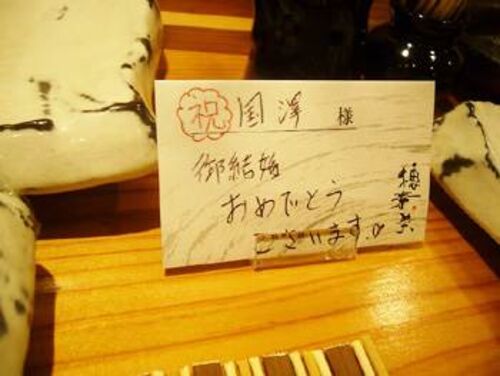 祝 国澤 様
御結婚
おめでとう
ございます。